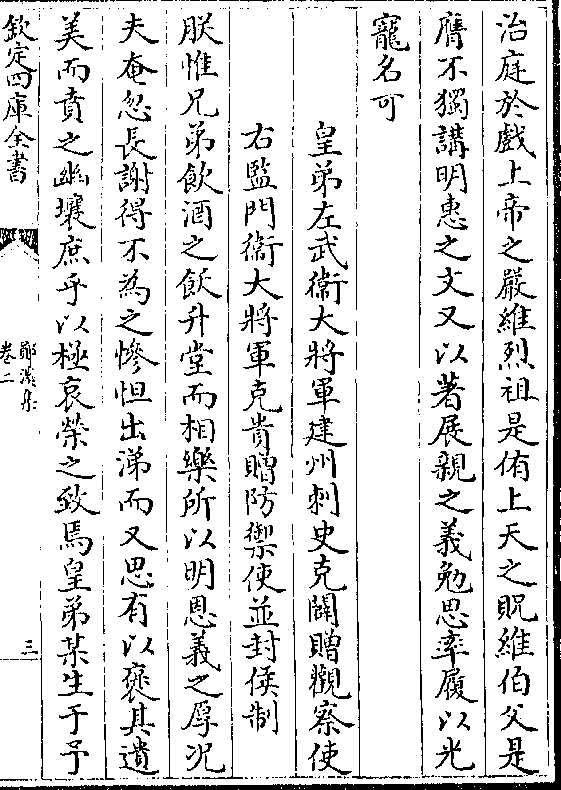 治庭於戲上帝之嚴維烈祖是侑上天之貺維伯父是
膺不獨講明惠之文又以著展親之義勉思率履以光
寵名可
皇弟左武衞大將軍建州刺史克闢贈觀察使
右監門衞大將軍克貴贈防禦使並封侯制
朕惟兄弟飲酒之飫升堂而相樂所以明恩義之厚况
夫奄忽長謝得不為之慘怛出涕而又思有以褒其遺
美而賁之幽壤庶乎以極哀榮之致焉皇弟某生于予
欽定四庫全書
鄖溪集
卷二
三